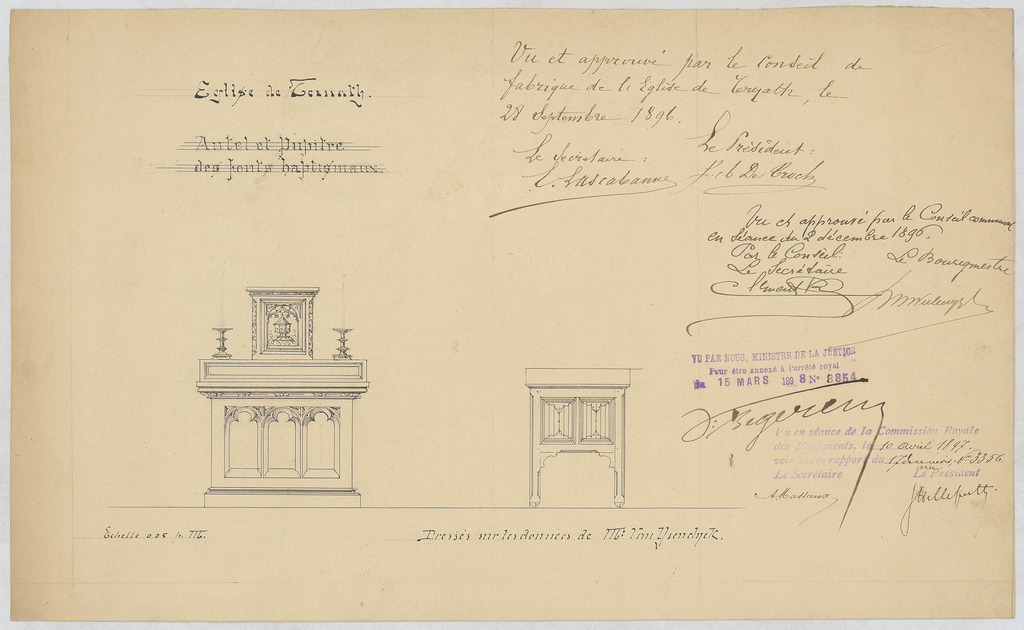 Eglise de Ternath.
Autel et Pupitre
des fonts baptismaux.
Vu et approuvé par le Conseil de
fabrique de l'Eglise de Ternath, le
28 Septembre 1896.
Le Secrétaire :
Le Président :
De Crock
Vu et approuvé par le Conseil communal
en séance du 2 décembre 1896.
Par le Conseil:
Le Secrétaire
Le Bourgmestre
VU PAR NOUS, MINISTRE DE LA JUSTICE
Pour être annexé à l'arrêté royal
du 15 MARS 1898 N° 8854
V. Begerem
Vu en séance de la Commission Royale
des Monuments, le 10 avril 1897
voir notre rapport du N° 3356
Le Secrétaire
Le Président
A. Massaux
Helleputte
Echelle 0.05 p. M.
Dressés sur les données de Mr. Van